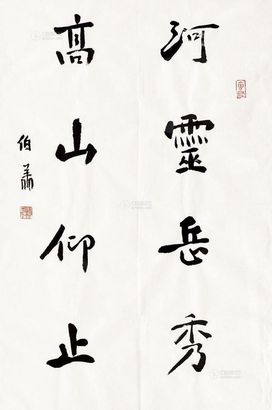 河靈岳秀
高山仰止
伯羔